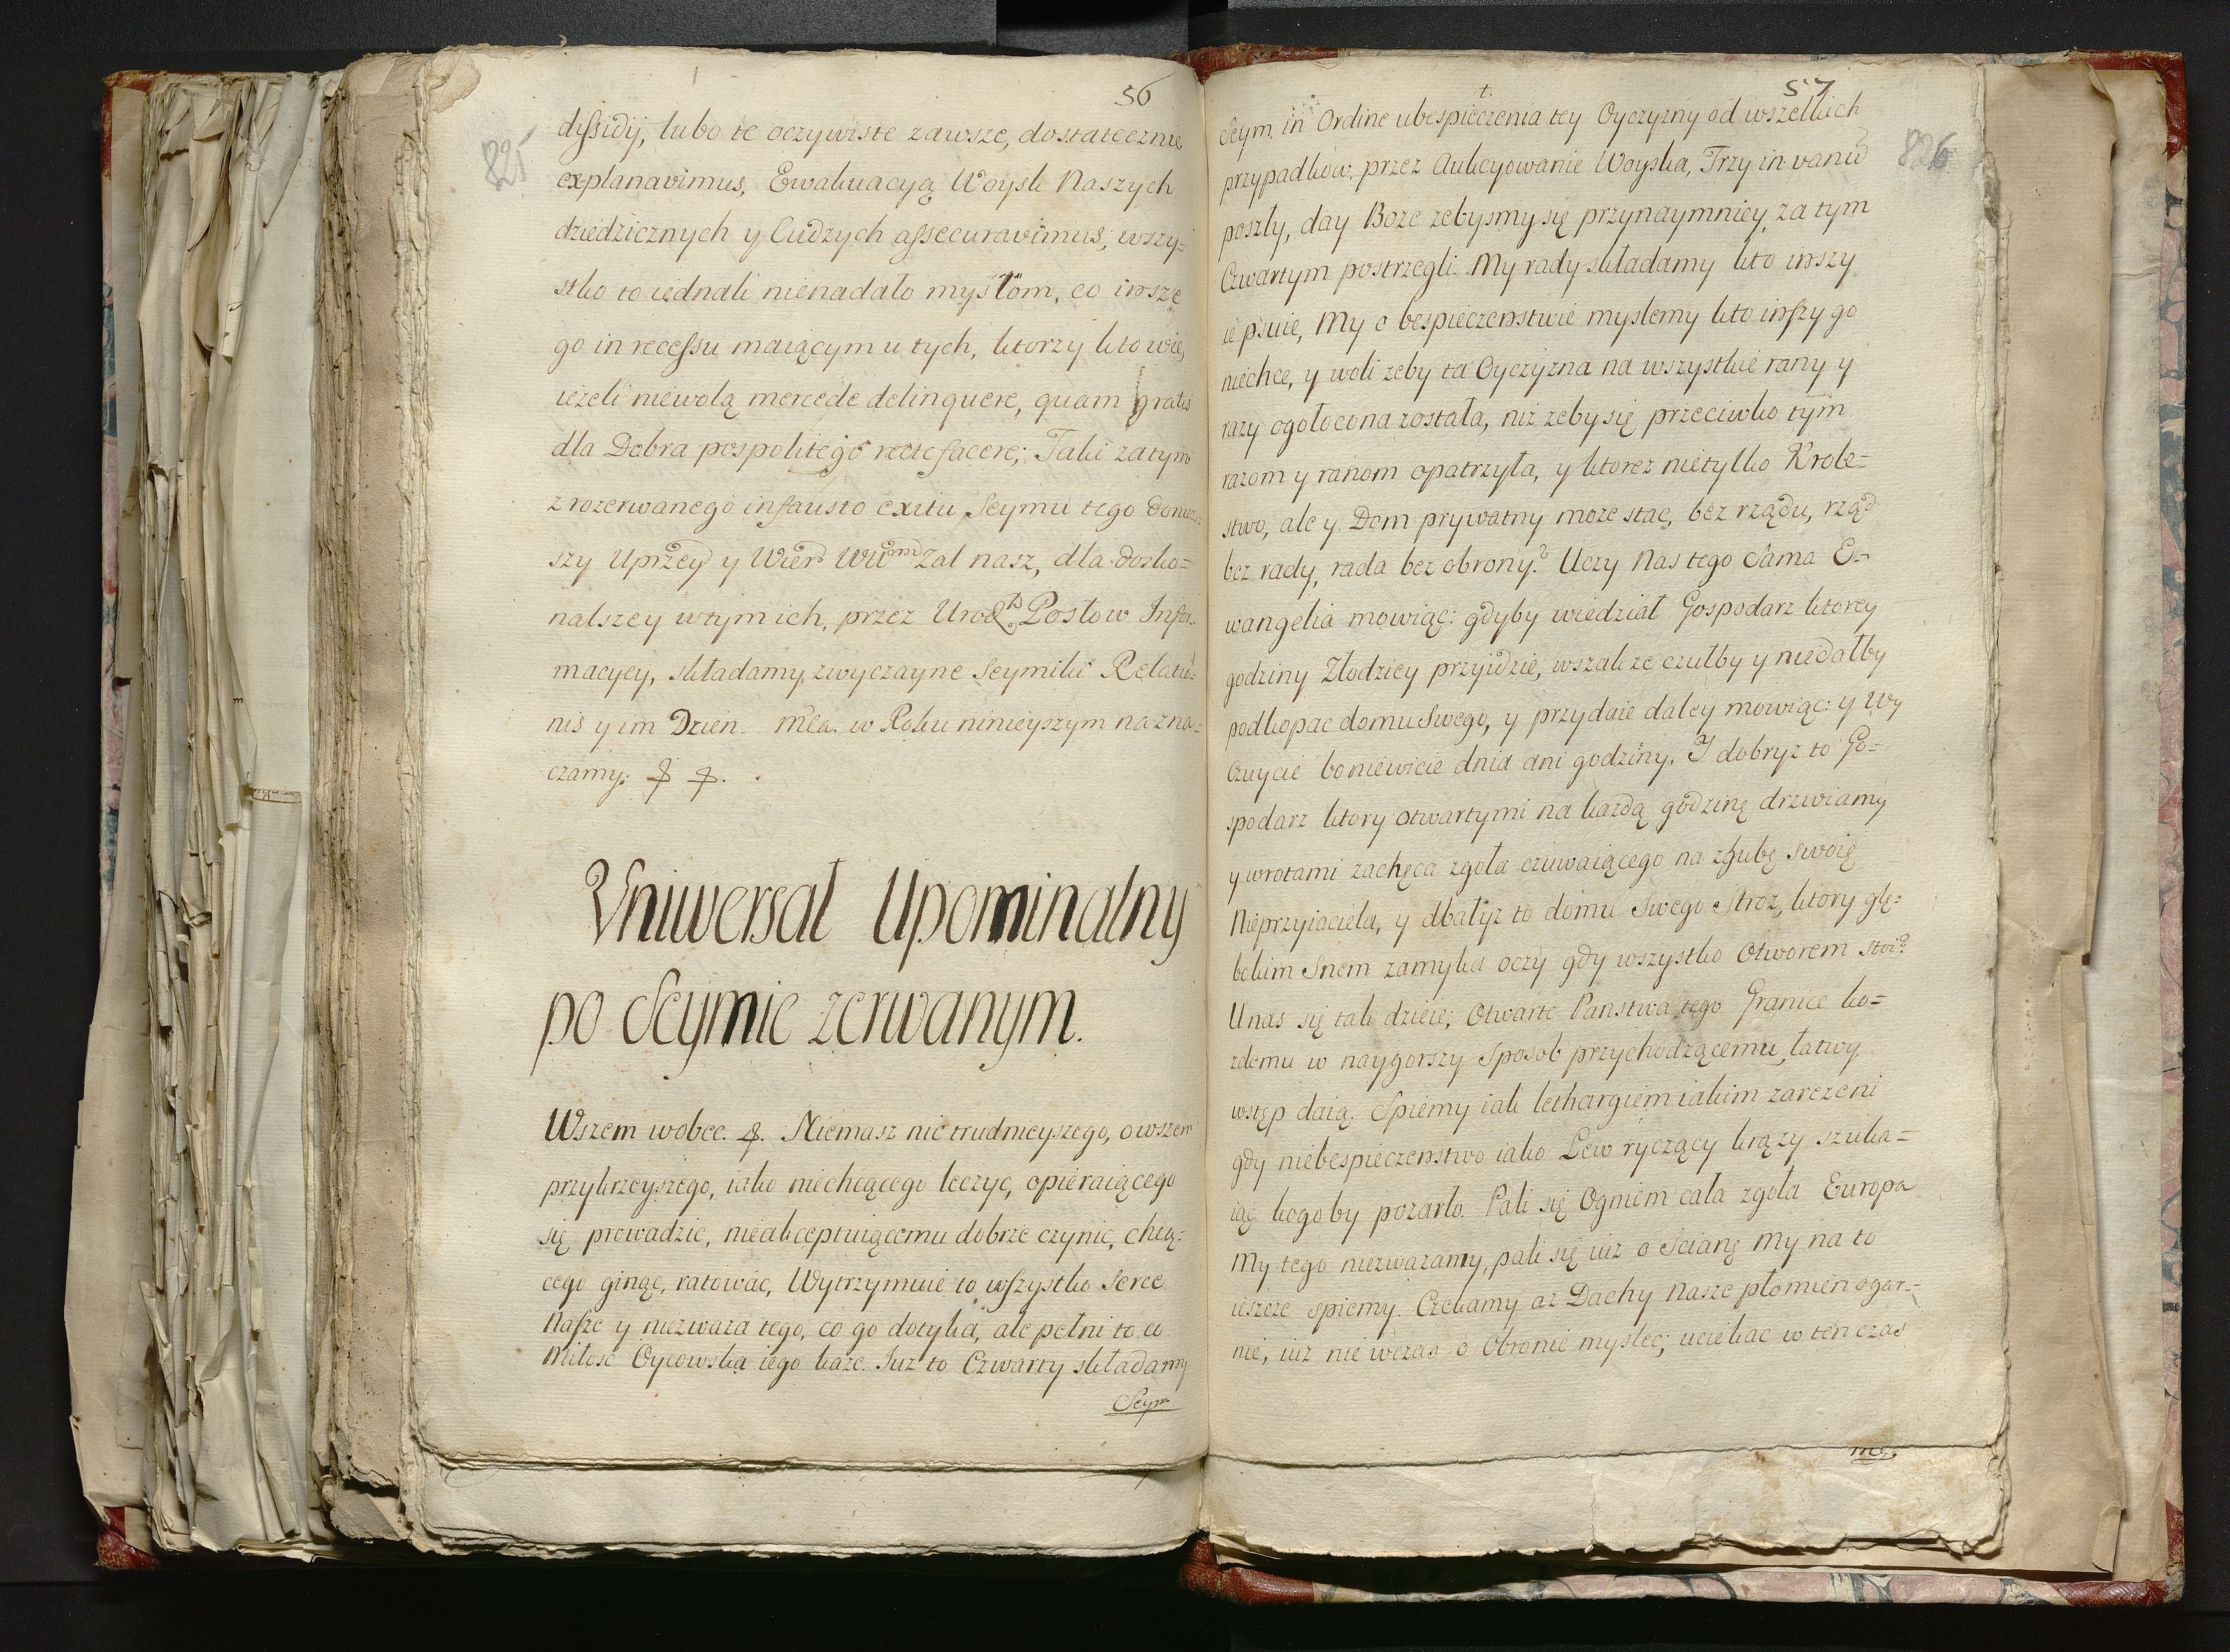 56
825
dissidij, lubo te oczywiste zawsze, dostatecznie
explanavimus, Ewakuacyą Woysk Naszych
dziedzicznych y Cudzych assecuravimus, wszy=
stko to iednak nienadało mysłom, co insze
go in recessu maiącym u tych, ktorzy kto wie,
ieżeli niewolą mercede delinquere, quam gratis
dla Dobra pospolitego recte facere; Taki zatym
z rozerwanego infausto exitu Seymu tego
szy Uprzey y Wier żal nasz, dla dosko=
nalszey wtym ich, przez Urodz. Posłow Infor=
macyey, składamy zwyczayne Seymiki Relatio=
nis y im Dzien. mca. w Roku ninieyszym na zna=
czamy:
Uniwersał Upominalny
po Seymie zerwanym.
Wszem wobec. Niemasz nic trudnieyszego, owszem
przykrzeyszego, iako niechcącego leczyc, opieraiącego
się prowadzic, nieakceptuiącemu dobrze czynic, chcą=
cego ginąc, ratowac, Wytrzymuie to wszystko Serce
Nasze y niezwaza tego, co go dotyka, ale pełni to co
Miłosc Oycowska iego każe. Iuz to Czwarty składamy
Seym
57
826
Seym, in Ordine ubespieczenia tey Oyczyzny od wszelkich
przypadkow, przez Aukcyowanie Woyska, Trzy in vanum
poszły, day Boże zebysmy się przynaymniey, za tym
Czwartym postrzegli. My rady składamy kto inszy
ie psuie, My o bespieczenstwie myslemy kto inszy go
niechce, y woli zeby ta Oyczyzna na wszystkie rany y
razy ogołocona została, niż zeby się przeciwko tym
razom y ranom opatrzyła, y ktoreż nietylko Krole=
stwo, ale y Dom prywatny może stac, bez rządu, rząd
bez rady, rada bez obrony? Uczy Nas tego Sama E=
wangelia mowiąc: gdyby wiedział Gospodarz ktorey
godziny Złodziey przyidzie, wszakze czułby y niedałby
podkopac domu Swego, y przydaie daley mowiąc: y Wy
Czuycie boniewicie dnia ani godziny. I dobryz to Go=
spodarz ktory otwartymi na każdą godzinę drzwiamy
y wrotami zachęca zgoła czuwaiącego na zgubę swoię
Nieprzyiaciela, y dbałyz to domu Swego Stroz, ktory głę=
bokim Snem zamyka oczy gdy wszystko Otworem stoi?
Unas się tak dzieie; Otwarte Panstwa tego Granice ko=
zdemu w naygorszy Sposob przychodzącemu, łatwy
wstęp daią. Spiemy iak lethargiem iakim zarezeni
gdy niebespieczenstwo iako Lew ryczący krązy szuka=
iąc kogoby pozarło. Pali się Ogniem cała zgoła Europa
My tego niezwazamy, pali się iuż o Scianę My na to
ieszcze spiemy. Czekamy az Dachy Nasze płomien ogar=
nie, iuż nie wczas o Obronie myslec; uciekac w ten czas